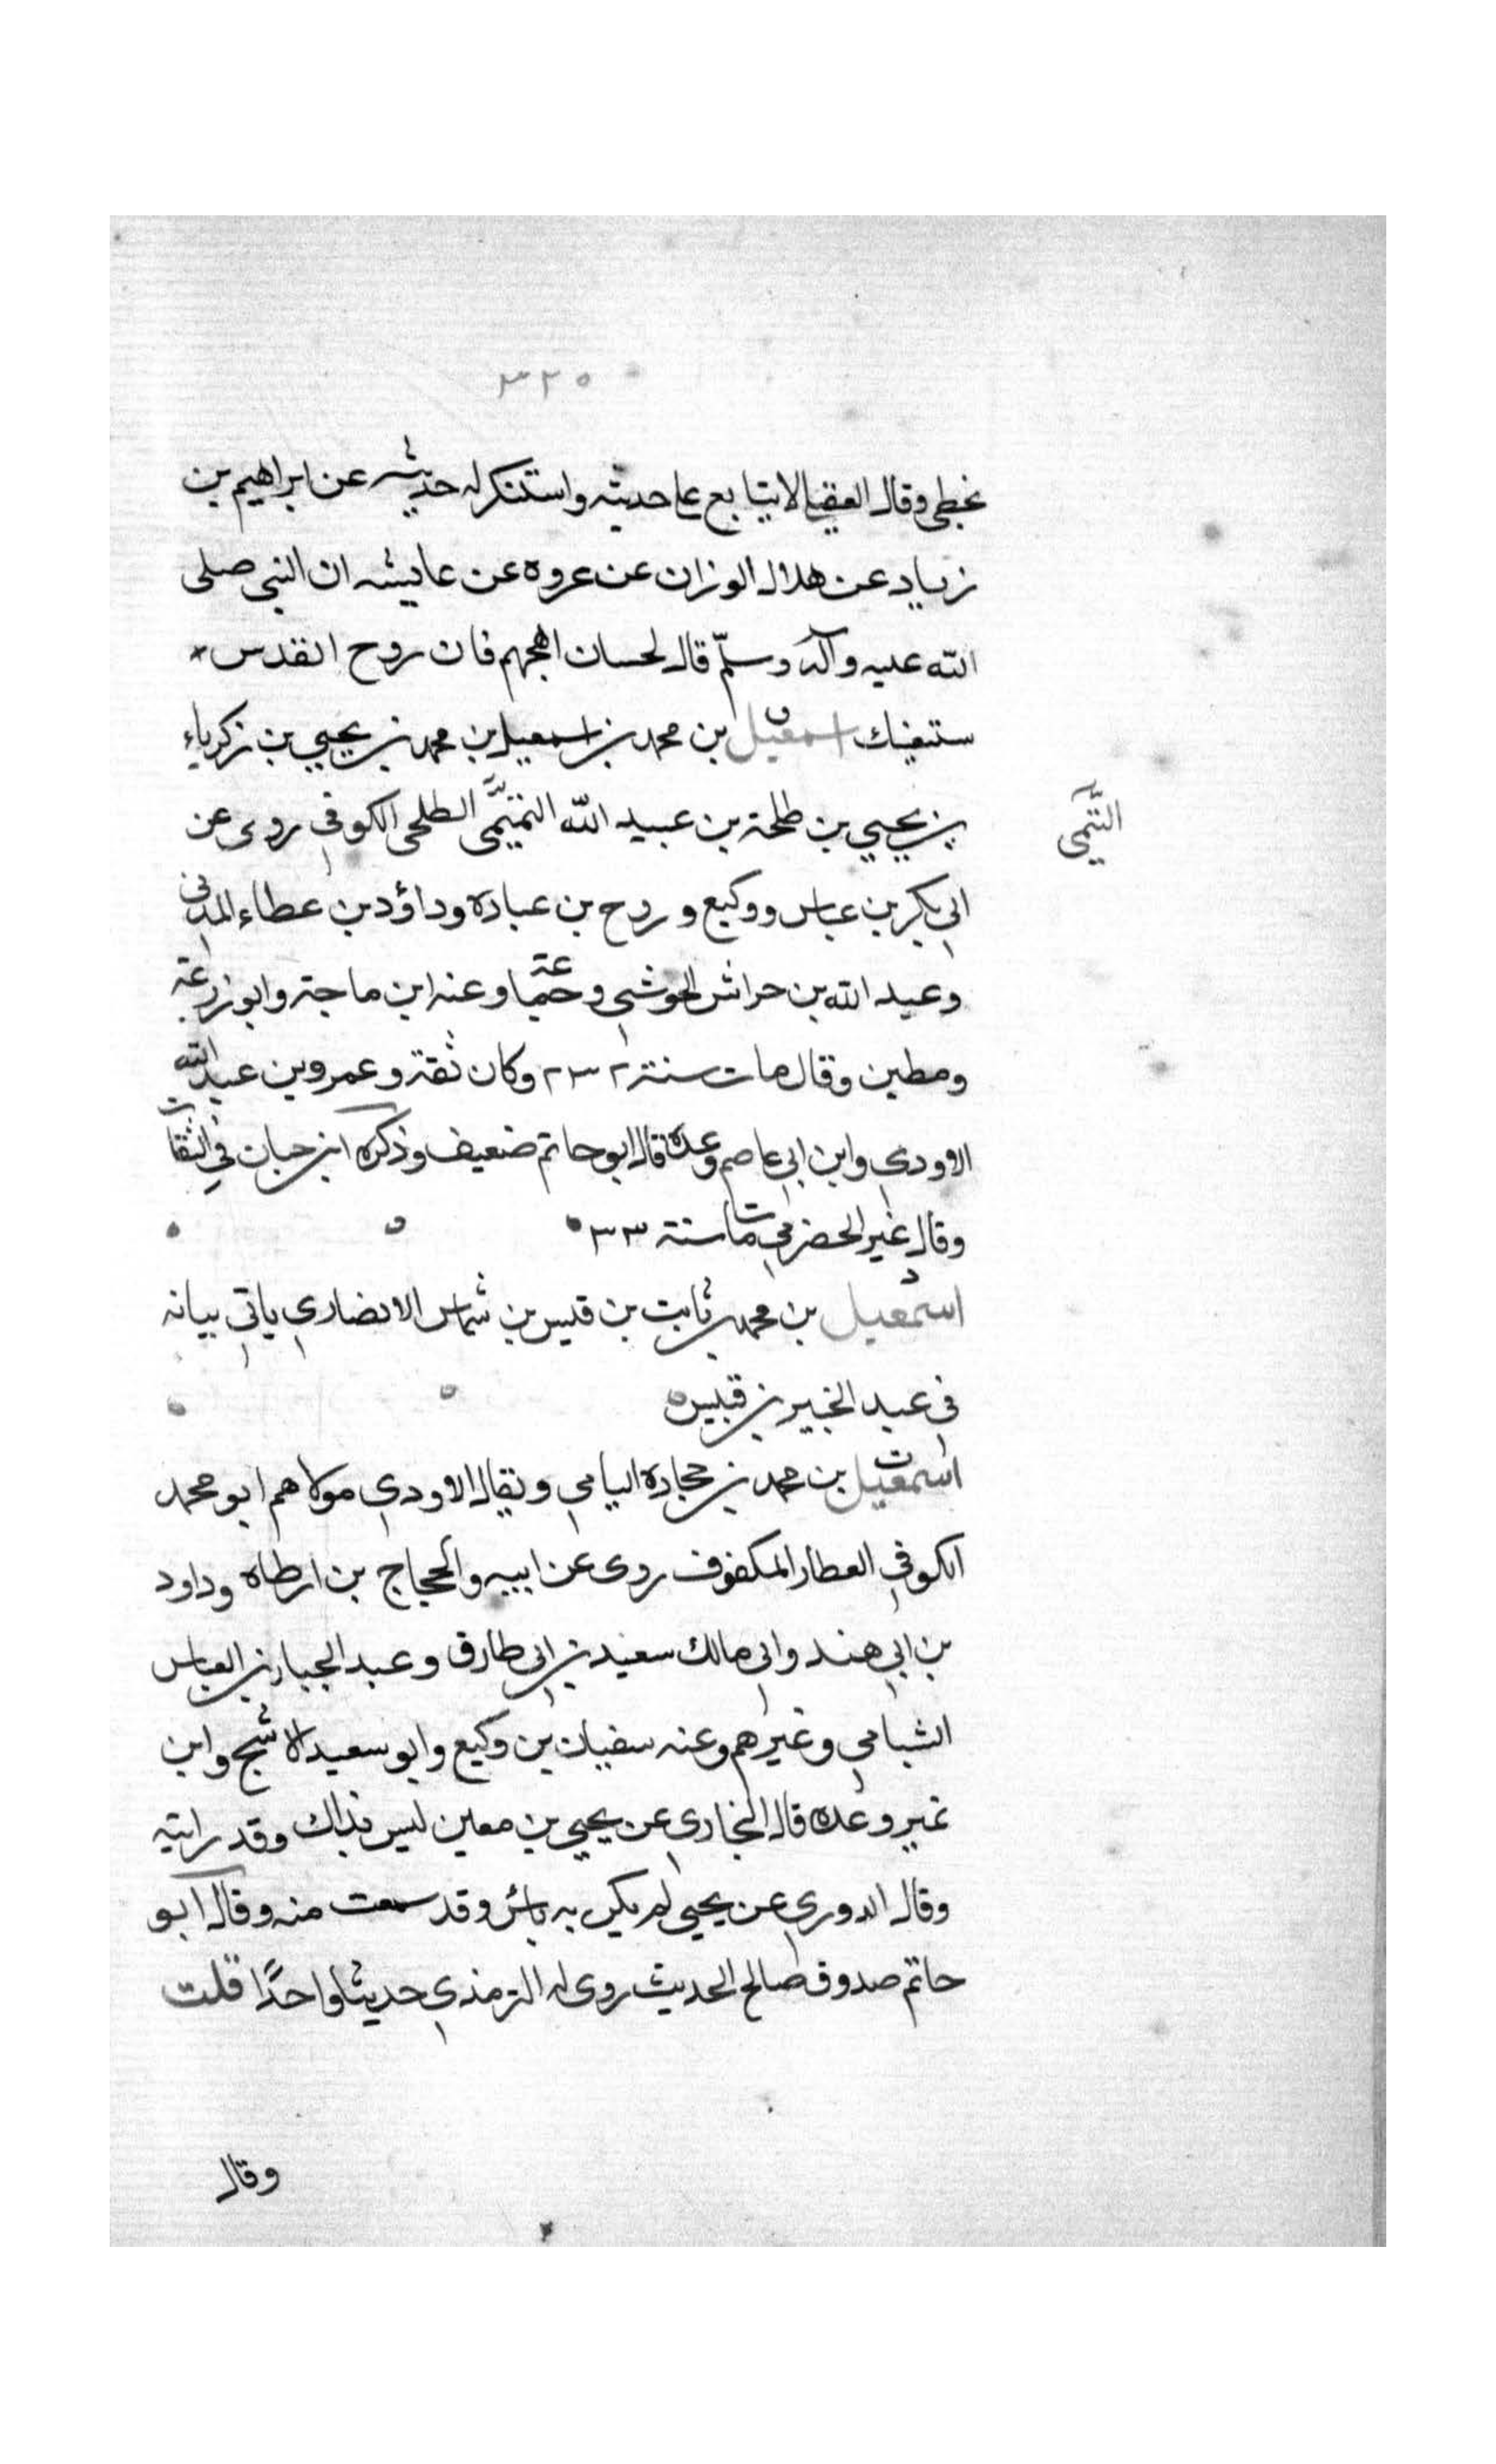 ٣٢٥
يخطى وقال العقيلى لا يتابع على حديثه واستنكر له حديثه عن ابراهيم بن
زياد عن هلال الوزان عن عروه عن عايشه ان النبى صلى
الله عليه وآله وسلّم قال لحسان اهجهم فان روح القدس
ستعينك اسمعيل بن محمد بن اسمعيل بن محمد بن يحيي بن زكرياء
بن يحيي بن طلحة بن عبيد الله التميّمى الطلحى الكوفي روى عن
التَّيمى
ابي بكر بن عباس ووكيع وروح بن عبادة وداؤد بن عطاء المدنى
وعبد الله بن حراش الحوشبي وعنه ابن ماجة وابو زرعة
ومطين وقال مات سنة ٢٣٢ وكان ثقة وعمرو بن عبد الله
الاودي وابن ابي عاصم وعدة قال ابو حاتم ضعيف وذكره ابن حبان في الثقات
وقال غير الحضرمي مات سنة ٣٣
اسمعيل بن محمد بن ثابت بن قيس بن شماس الانصاري ياتي بيانه
في عبد الخبير بن قيس
اسمعيل بن محمد بن حجادة اليامي ويقال الاودي مولاهم ابو محمد
الكوفي العطار المكفوف روى عن ابيه والحجاج بن ارطاه وداود
بن ابي هند وابى مالك سعيد بن ابى طارق وعبد الجبار بن العباس
الشبامي وغيرهم وعنه سفيان بن وكيع وابو سعيد الاشج وابن
نمير وعده قال البخارى عن يحيي بن معين ليس بذاك وقد رايته
وقال الدوري عن يحيى لم يكن به باس وقد سمعت منه وقال ابو
حاتم صدوق صالح الحديث روى له الترمذي حديثا واحدًا قلت
وقال